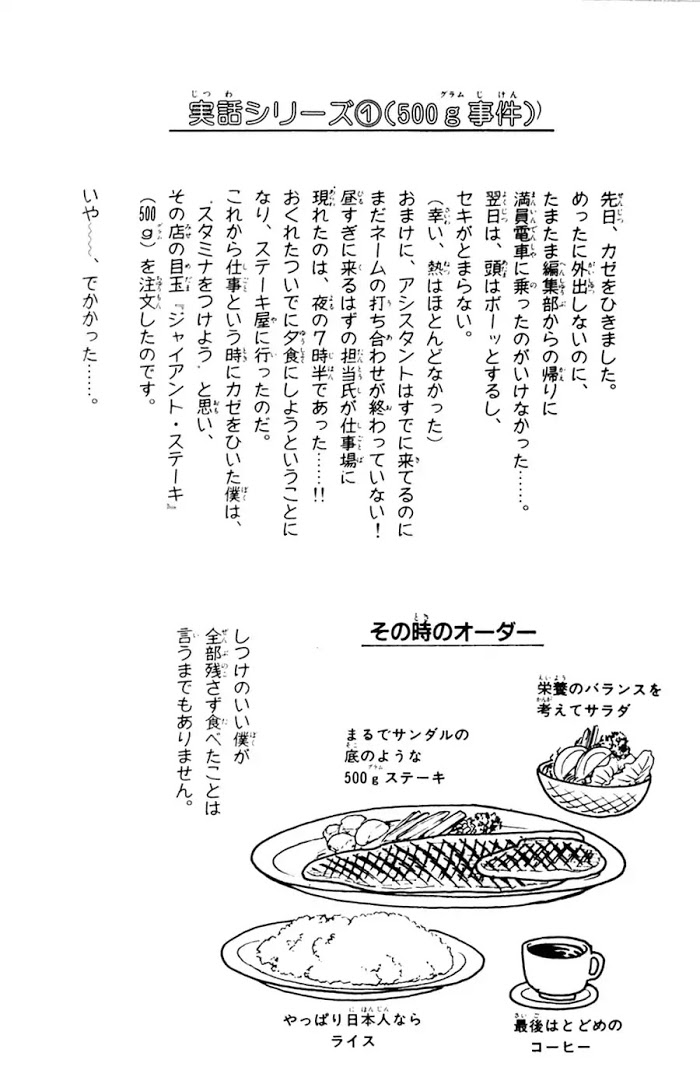 実話シリーズ①(500g事件)
先日、カゼをひきました。
めったに外出しないのに、
たまたま編集部からの帰りに
満員電車に乗ったのがいけなかった……。
翌日は、頭はボーッとするし、
セキがとまらない。
(幸い、熱はほとんどなかった)
おまけに、アシスタントはすでに来てるのに
まだネームの打ち合わせが終わっていない!
昼すぎに来るはずの担当氏が仕事場に
現れたのは、夜の7時半であった……!!
おくれたついでに夕食にしようということに
なり、ステーキ屋に行ったのだ。
これから仕事という時にカゼをひいた僕は、
〝スタミナをつけよう〟と思い、
その店の目玉『ジャイアント・ステーキ』
(500g)を注文したのです。
いや〜〜〜、でかかった……。
その時のオーダー
栄養のバランスを
考えてサラダ
まるでサンダルの
底のような
500gステーキ
やっぱり日本人なら
ライス
最後はとどめの
コーヒー
しつけのいい僕が
全部残さず食べたことは
言うまでもありません。